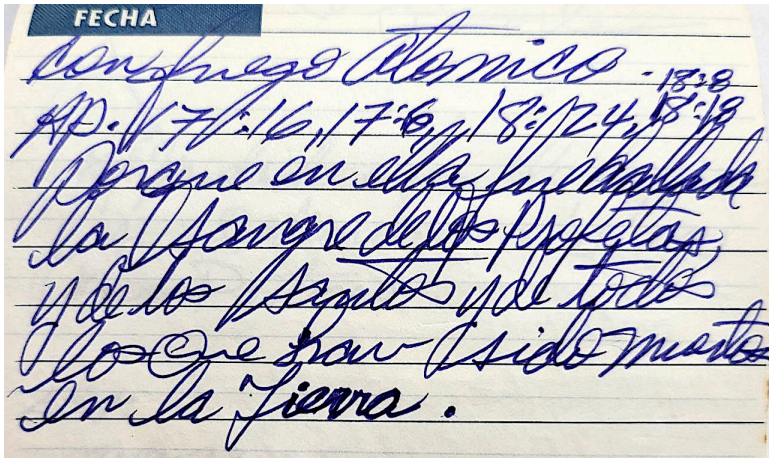 FECHA
con fuego Atomico. 18:8
Ap. 17:16, 17:6, 18:24, 18:18
Porque en ella fue hallada
la Sangre de los Profetas,
y de los Santos y de todos
los que han sido muertos
en la Tierra.